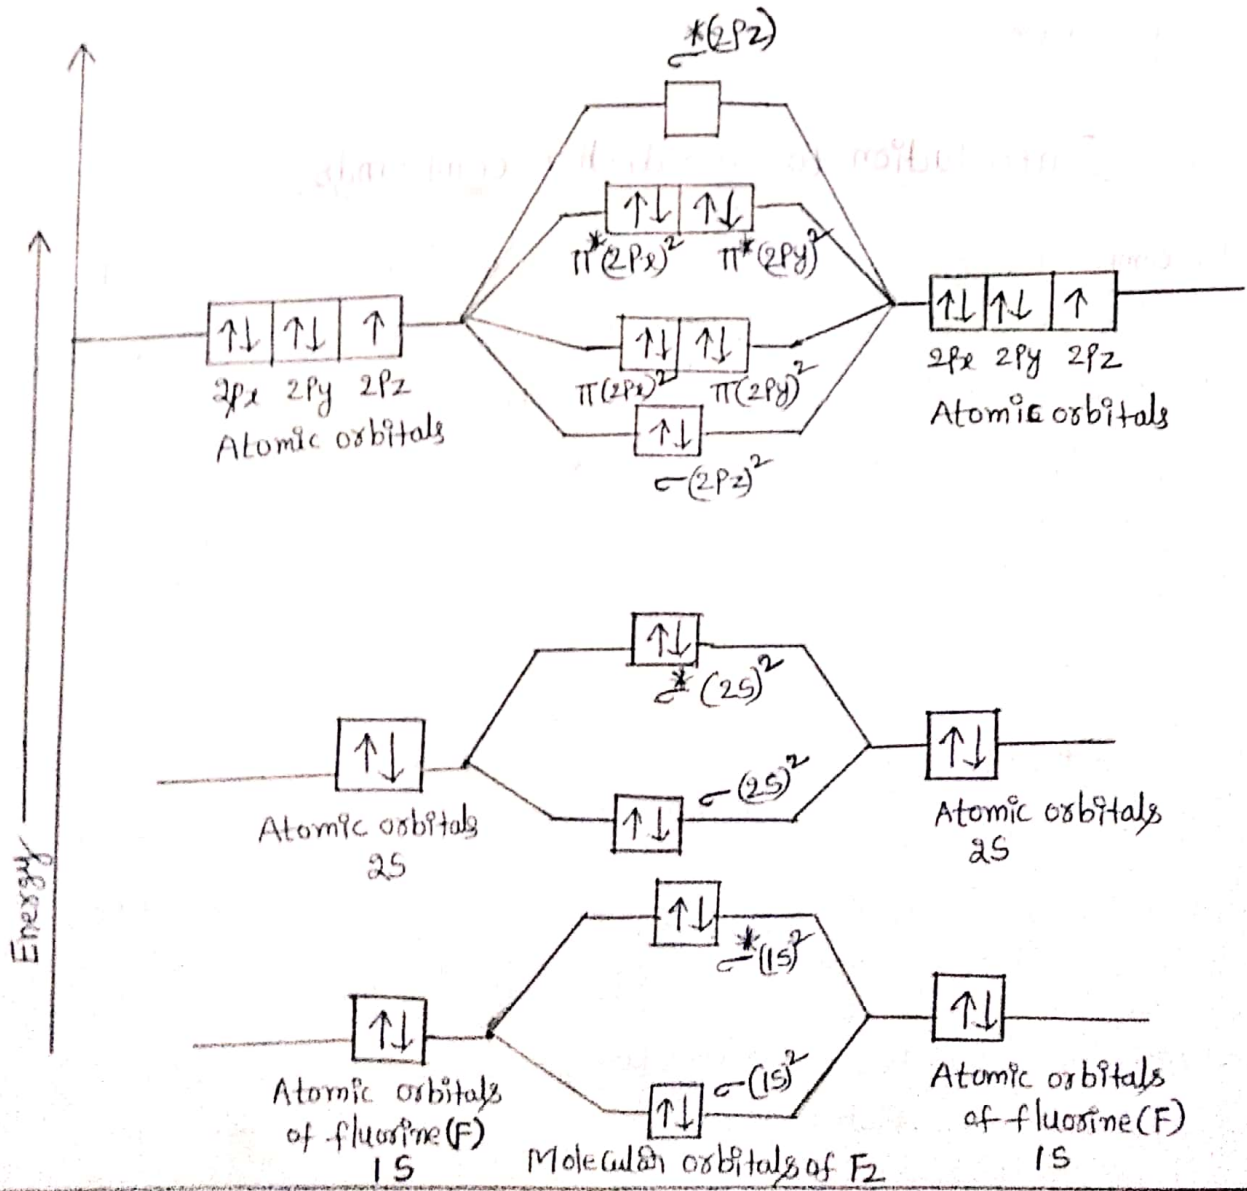 σ*(2Pz)
π*(2Px)² π*(2Py)²
2px 2Py 2Pz
Atomic orbitals
π(2Px)² π(2Py)²
σ(2Pz)²
2Px 2Py 2Pz
Atomic orbitals
σ*(2S)²
σ(2S)²
Atomic orbitals
2S
Atomic orbitals
2S
σ*(1S)²
σ(1S)²
Atomic orbitals
of fluorine(F)
1S
Molecular orbitals of F2
Atomic orbitals
of fluorine(F)
1S
Energy